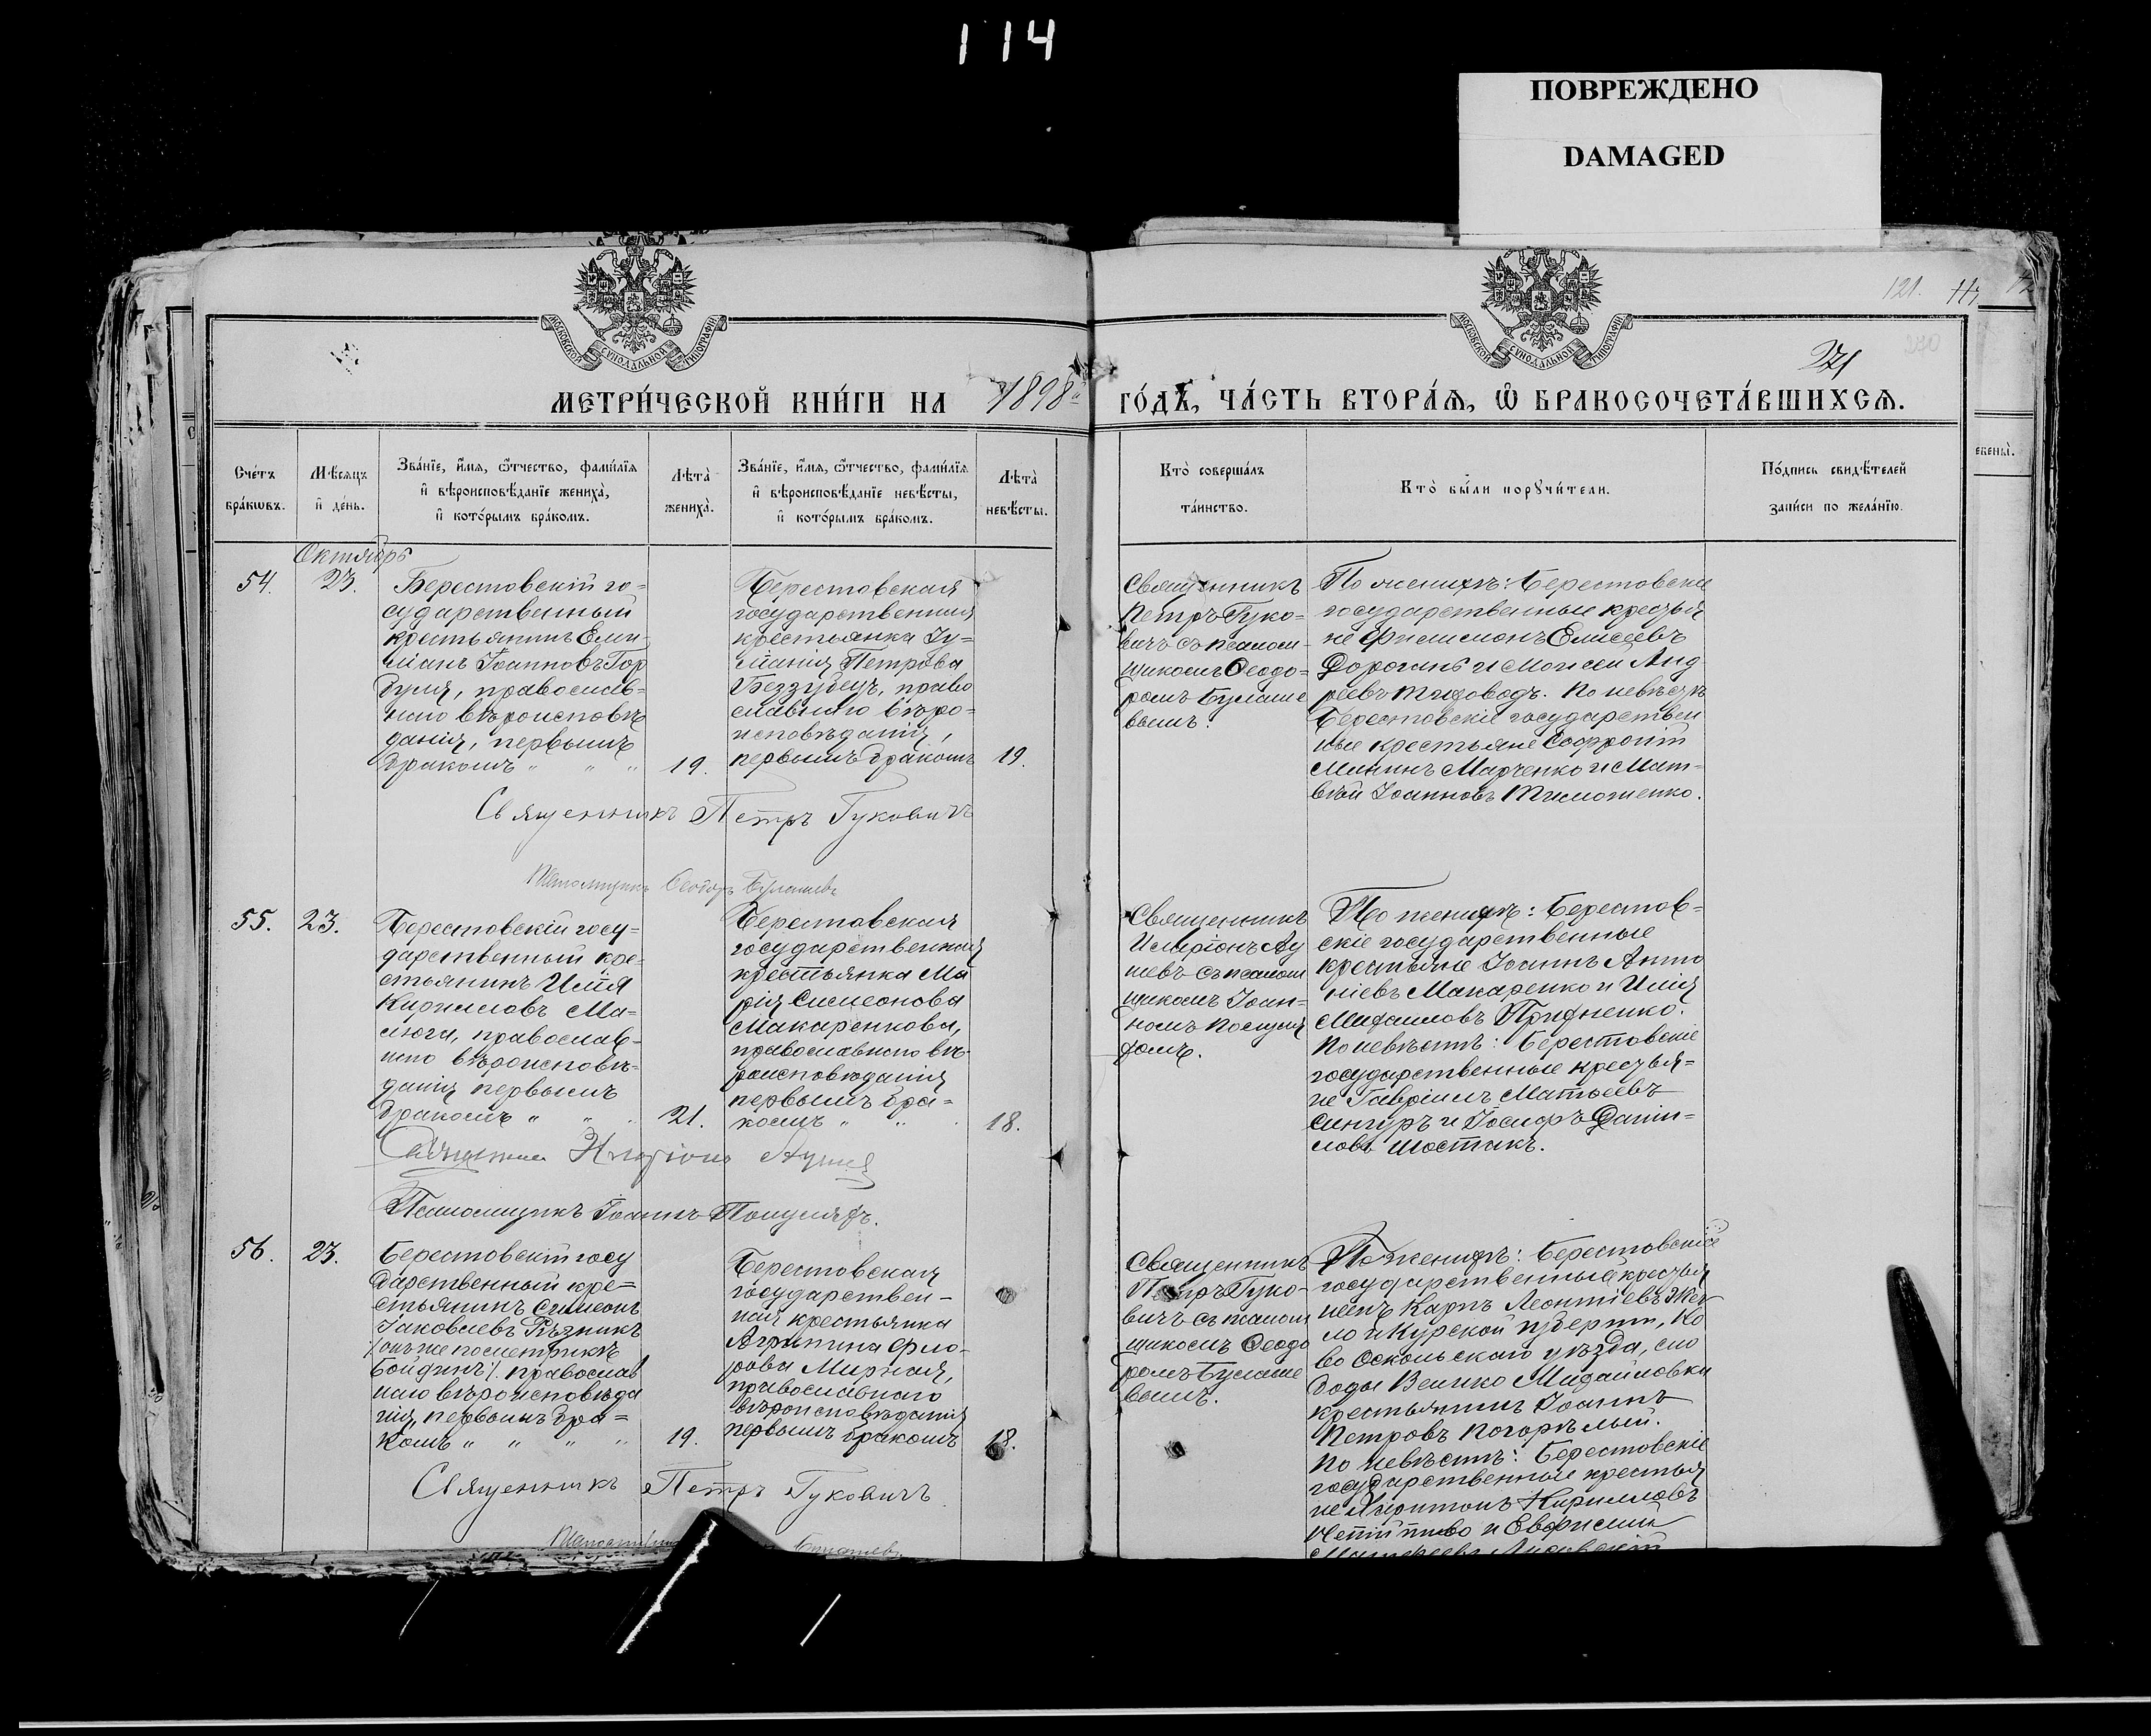 114
ПОВРЕЖДЕНО
DAMAGED
МОСКОВСКОЙ СѴНОДАЛЬНОЙ ТИПОГРАФІИ
МОСКОВСКОЙ СѴНОДАЛЬНОЙ ТИПОГРАФІИ
121.
271
270
МЕТРИ́ЧЕСКОЙ КНИ́ГИ НА 1898й
ГО́ДЪ, ЧА́СТЬ ВТОРА́Ѧ, Ѡ҆ БРАКОСОЧЕТА́ВШИХСѦ.
Сче́тъ
бра́кѡвъ.
Мѣ́сяцъ
и҆ де́нь.
Зва́нїе, и҆́мя, ѻ҆́тчество, фами́лїя
и҆ вѣроисповѣ́данїе жениха̀,
и҆ кото́рымъ бра́комъ.
Лѣта̀
жениха̀.
Зва́нїе, и҆́мя, ѻ҆́тчество, фами́лїя
и҆ вѣроисповѣ́данїе невѣ́сты,
и҆ кото́рымъ бра́комъ.
Лѣта̀
невѣ́сты.
Кто̀ соверша́лъ
та́инство.
Кто̀ бы́ли порꙋчи́тели.
По́дпись свидѣ́телей
за́писи по жела́нїю.
Октябрь
54.
23.
Берестовскій го=
сударственный
крестьянинъ Еми-
ліанъ Іоанновъ Гор
дуля, православ=
наго вѣроисповѣ
данія, первымъ
бракомъ " " "
19.
Берестовская
государственная
крестьянка Іу=
ліанія Петрова
Беззубецъ, право
славнаго вѣро=
исповѣданія,
первымъ бракомъ
19.
Священникъ
Петръ Гуко=
вичъ съ псалом
щикомъ Ѳеодо=
ромъ Булаше
вымъ.
По женихѣ: Берестовскіе
государственные крестья
не Филимонъ Елисеевъ
Дорогань и Моисей Анд
реевъ . По невѣстѣ
Берестовскіе государствен
ные крестьяне Софроній
Мининъ Марченко и Мат=
вѣй Іоанновъ Тимошенко.
Священникъ Петръ Гуковичъ
Псаломщикъ Ѳеодоръ Булашевъ
55.
23.
Берестовскій госу=
дарственный кре=
стьянинъ Илія
Кирилловъ Ма=
люга, православ=
наго вѣроисповѣ=
данія первымъ
бракомъ " "
21.
Берестовская
государственная
крестьянка Ма
рія Симеонова
Макаренкова,
православнаго вѣ-
роисповѣданія
первымъ бра=
комъ " "
18.
Священникъ
Иларіонъ
съ псалом
щикомъ Іоан=
номъ
По женихѣ: Берестов=
скіе государственные
крестьяне Іоаннъ Анто
ніевъ Макаренко и Илія
Михаиловъ Прихненко.
По невѣстѣ: Берестовскіе
государственные крестья=
не Гавріилъ Матѳеевъ
Сингуръ и Іосифъ Даніи=
ловъ Шостакъ.
Священникъ Иларіонъ
Псаломщикъ Іоаннъ
56.
23.
Берестовскій госу
дарственный кре=
стьянинъ Симеонъ
Іаковлевъ Рѣзникъ
/онъ же по метрикѣ
Бойдинъ/. православ
наго вѣроисповѣда
нія, первымъ бра=
комъ " " " "
19.
Берестовская
государствен-
ная крестьянка
Агрипина Фло-
рова Мирная,
православнаго
вѣроисповѣданія
первымъ бракомъ
18.
Священникъ
Петръ Гуко-
вичъ съ псалом
щикомъ Ѳеодо
ромъ Булаше
вымъ.
По женихѣ: Берестовскій
государственный крестья
нинъ Карпъ Леонтіевъ
и Курской губерніи, Но
во Оскольскаго уѣзда, сло
боды Велико Михайловки
крестьянинъ Іоаннъ
Петровъ Погорѣлый.
По невѣстѣ: Берестовскіе
государственные крестья
не Харитонъ Кирилловъ
и Евфимій
Священникъ Петръ Гуковичъ
Псаломщикъ Булашевъ